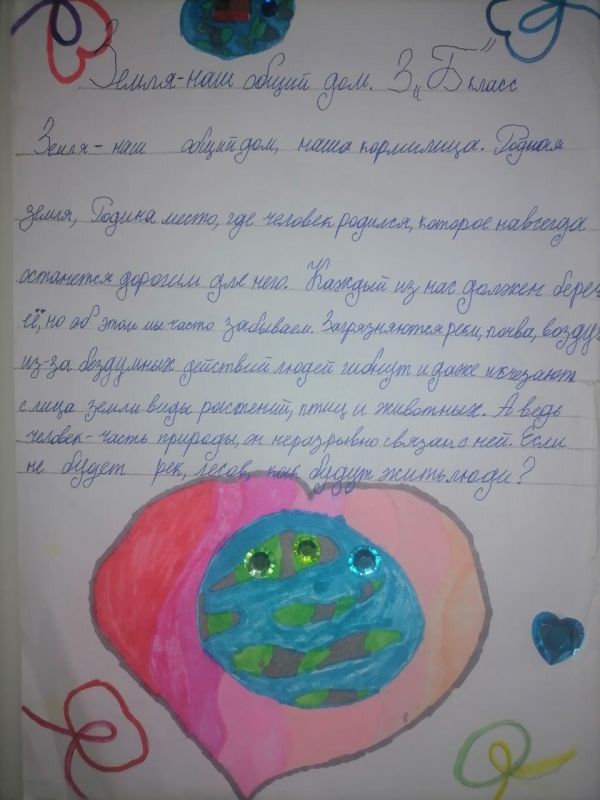 Земля-наш общий дом. 3 "Б" класс
Земля - наш общий дом, наша кормилица. Родная
земля, Родина место, где человек родился, которое навсегда
останется дорогим для него. Каждый из нас должен береч
её, но об этом мы часто забываем. Загрязняются реки, почва, воздух
из-за бездумных действий людей гибнут и даже исчезают
с лица земли виды растений, птиц и животных. А ведь
человек - часть природы, и неразрывно связан с ней. Если
не будет рек, лесов, как будут жить люди?